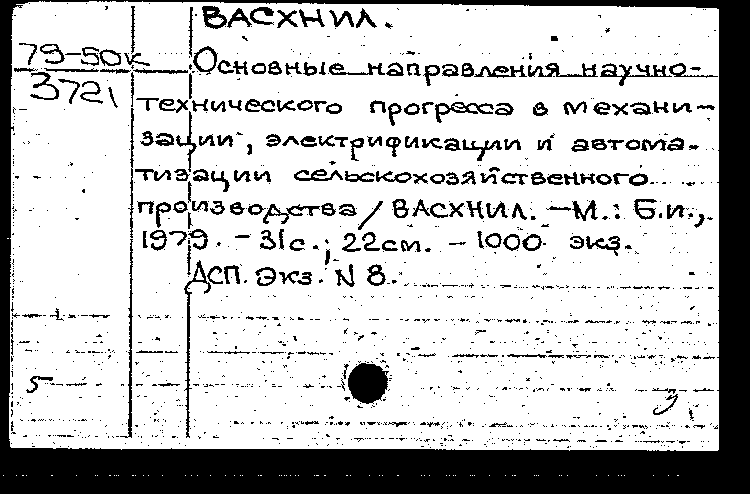 ВАСХНИЛ.
79-50к
3721
Основные направления научно-
технического прогресса в механи-
зации, электрификации и автома-
тизации сельскохозяйственного
производства / ВАСХНИЛ. - М.: Б.и.,
1979. - 31с.; 22см. - 1000 экз.
ДСП. Экз. N 8.
5
3